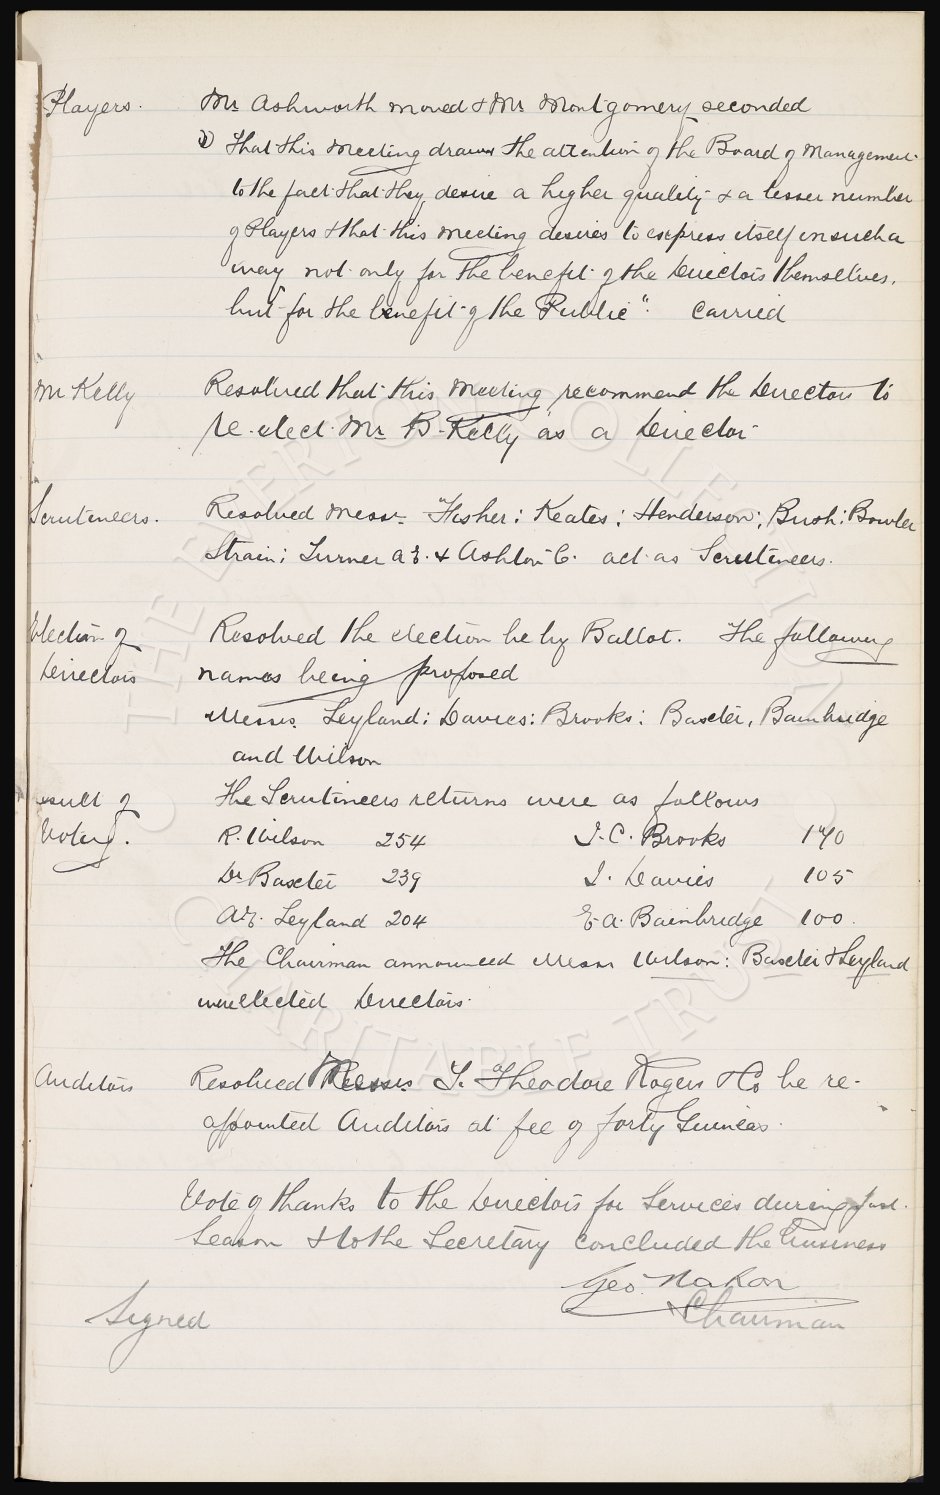 Players. Mr Ashworth moved & Mr Montgomery seconded
"That this Meeting draws the attention of the Board of Management
to the fact that they desire a higher quality & a lesser number
of Players & that this meeting desires to express itself in such a
way not only for the benefit of the Directors themselves,
but for the benefit of the Public". Carried
Mr Kelly Resolved that this Meeting recommend the Directors to
re-elect Mr B. Kelly as a Director
Scrutineers. Resolved Messrs Fisher: Keates: Henderson: Bush: Bowler
Strain: Turner & Ashton C. act as Scrutineers.
Election of Resolved the election be by Ballot. The following
Directors names being proposed
Messrs. Leyland: Davies: Brooks: Baxter, Bainbridge
and Wilson
Result of The Scrutineers returns were as follows
Voting. R. Wilson 254 J. C. Brooks 170
Dr Baxter 239 J. Davies 105
Leyland 204 E. A. Bainbridge 100.
The Chairman announced Messrs Wilson: Baxter & Leyland
were elected Directors.
Auditors Resolved Messrs T. Theodore Rogers & Co be re-
appointed Auditors at fee of forty Guineas.
Vote of thanks to the Directors for Services during past
Season & to the Secretary concluded the business
Geo. Mahon
Signed Chairman
THE EVERTON COLLECTION
CHARITABLE TRUST